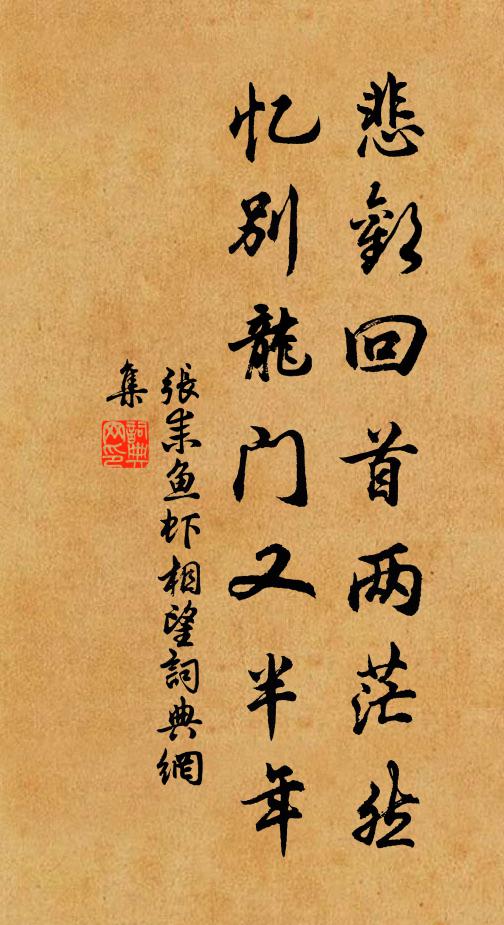 悲歡回首两茫然
忆别龍门又半年
張耒鱼虾相望詞典網
集
詞典网印